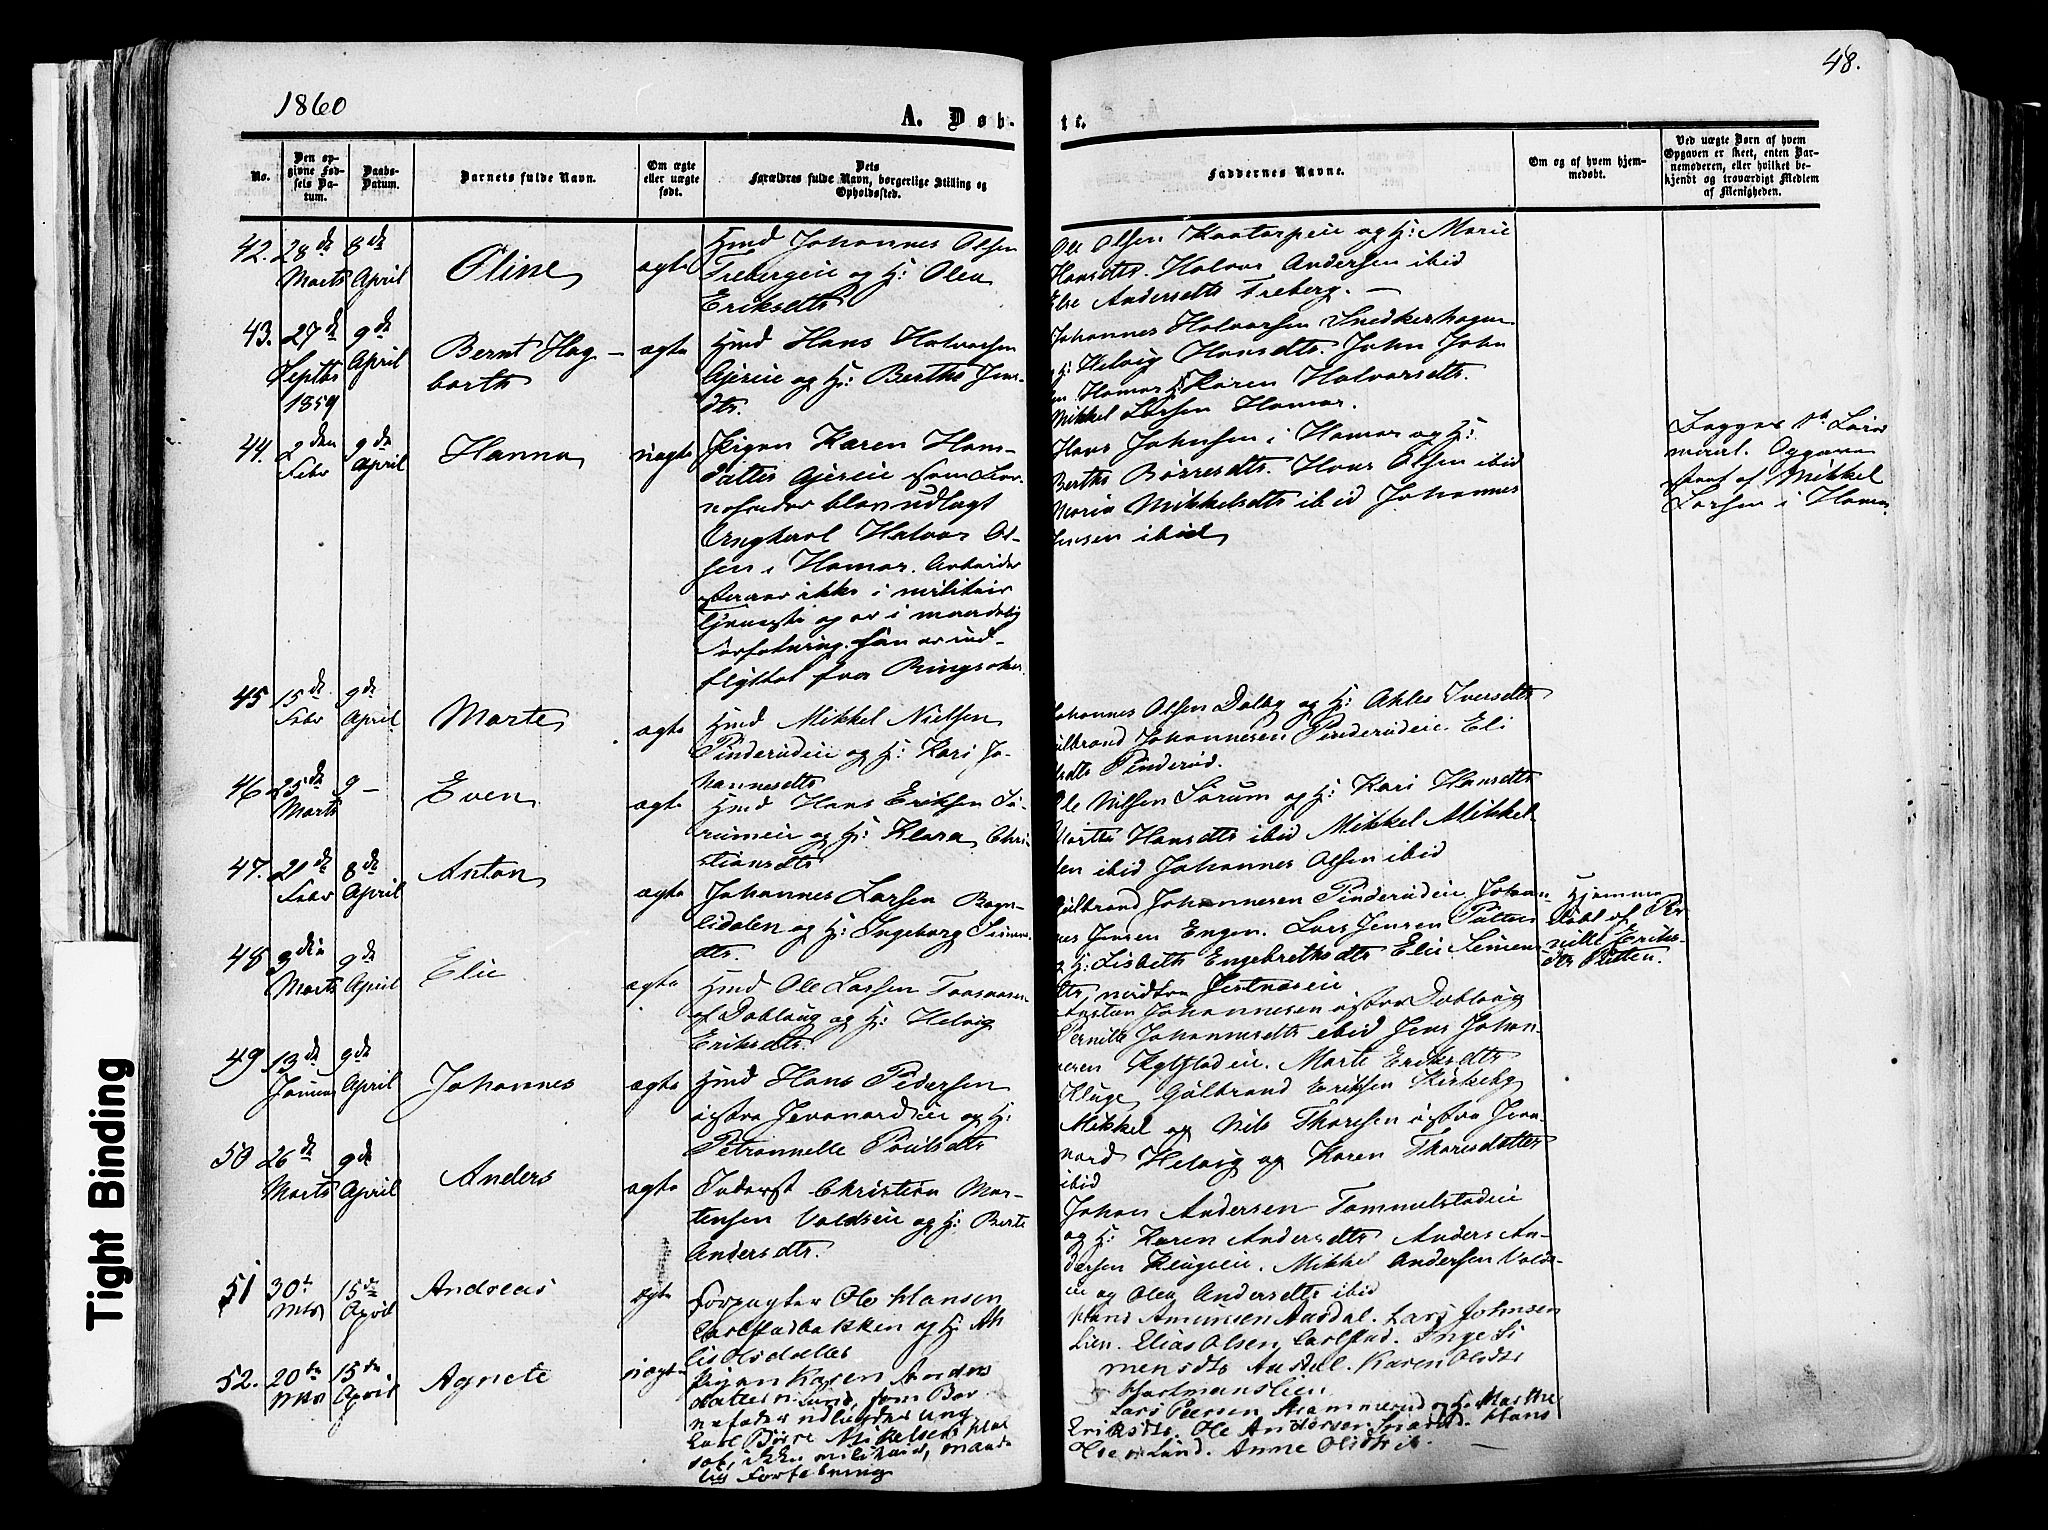 1860
48.
A. Døb-
te.
No.
Den op-
givne Fød-
sels Da-
tum.
Daabs-
Datum.
Barnets fulde Navn.
Om ægte
eller uægte
født.
Dets
Forældres fulde Navn, borgerlige Stilling og
Opholdssted.
Faddernes Navne.
Om og af hvem hjem-
medøbt.
Ved uægte Børn af hvem
Opgaven er skeet, enten Bar-
nemoderen, eller hvilket be-
kjendt og troværdigt Medlem
af Menigheden.
42. 28de Marts
8de April
Oline
ægte
Hmd Johannes Olsen
Trebergeie og H: Olea
Eriksdtr
Ole Olsen Kaatorpeie og H: Marie
Hansdtr. Halvor Andersen ibid
Else Andersdtr Freberg. —
43. 27de Septbr 1859
9de April
Bernt Hag-
barth
ægte
Hmd Hans Halvorsen
Ajereie og H: Berthe Jens-
dtr.
Johannes Halvorsen Snedkerhagen
og Helvig Hansdtr. John John
sen Hamar H: Karen Halvorsdtr.
Mikkel Larsen Hamar.
44. 2den Febr
9de April
Hanna
uægte
Pigen Karen Hans-
datter Ajereie som Bar-
nefader blev udlagt
Ungkarl Halvor Ol-
sen i Hamar. Arbeider
staaer ikke i militair
Tjeneste og er i maadelig
Forfatning. Han er ind-
flyttet fra Ringsaker
Hans Johnsen i Hamar og H:
Berthe Børresdtr. Hans Olsen ibid
Maria Mikkelsdtr ibid Johannes
Jensen ibid
Begges 1ste Leier
maal. Opgaven
skeet af Mikkel
Larsen i Hamar
45 15de Febr
9de April
Marte
ægte
Hmd Mikkel Nielsen
Pinderudeie og H: Kari Jo-
hannesdtr
Johannes Olsen Dalby og H: Ahles Iversdtr
Gulbrand Johannesen Pinderudeie Eli
dtr Pinderud.
46 25de Marts
9 —
Even
ægte
Hmd Hans Eriksen Sø-
rumeie og H: Klara Chri-
stiansdtr
Ole Nilsen Sørum og H: Kari Hansdtr
Marthe Hansdtr ibid Mikkel Mikkel
sen ibid Johannes Olsen ibid
47. 21de Febr
8de April
Anton
ægte
Johannes Larsen Bogn-
lidalen og H: Ingeborg Simens-
dtr.
Gulbrand Johannesen Pinderudeie Johan-
nes Jensen Engen. Lars Jensen Pütten
og H: Lisbeth Engebrethsdtr Elie Simens
dtr, nordtre Jestnæseie
Hjemme
døbt af Per
nille Eriks-
dtr Pütten.
48 3die Marts
9de April
Elie
ægte
Hmd Ole Larsen Faasaasen
af Dobloug og H: Helvig
Eriksdtr.
Johannesen østre Doblaug
Pernille Johannesdtr ibid Jens Johan-
nesen Kylstadeie. Marte Eriksdtr
49 13de Januar
9de April
Johannes
ægte
Hmd Hans Pedersen
østre Jevanordeie og H:
Petronnelle Poulsdtr
Kluge Gulbrand Eriksen Kirkeby
Mikkel og Nils Thoresen østre Jeva-
nord Helvig og Karen Thoresdatter
ibid
50 26de Marts
9de April
Anders
ægte
Inderst Christian Mar-
tensen Valdseie og H: Berte
Andersdtr.
Johan Andersen Tommelstadeie
og H: Karen Andersdtr Anders An-
dersen Klugeeie. Mikkel Andersen Valds-
eie og Olea Andersdtr ibid
51 30te Mrts
15de April
Andreas
ægte
Forpagter Ole Hansen
Carlstadbakken og H: Ah
lis Olsdatter
Amunsen Aasdal. Lars Johnsen
Lien. Elias Olsen, Carlstad. Inge Si
mensdtr Aasdal. Karen Olsdtr
Hartmanslien
52. 20de Mrts
15de April
Agnete
uægte
Pigen Karen Anders
datter n. Lund, som Bar
nefader udlagdes Ung
karl Børre Mikelsen
, ikke militair, maade
lig Forfatning
Lars Pedersen Strammerud og H: Marthe
Eriksdtr. Ole Andersen Hans
Olse n. Lund. Anne Olsdtr ib. —
Tight Binding